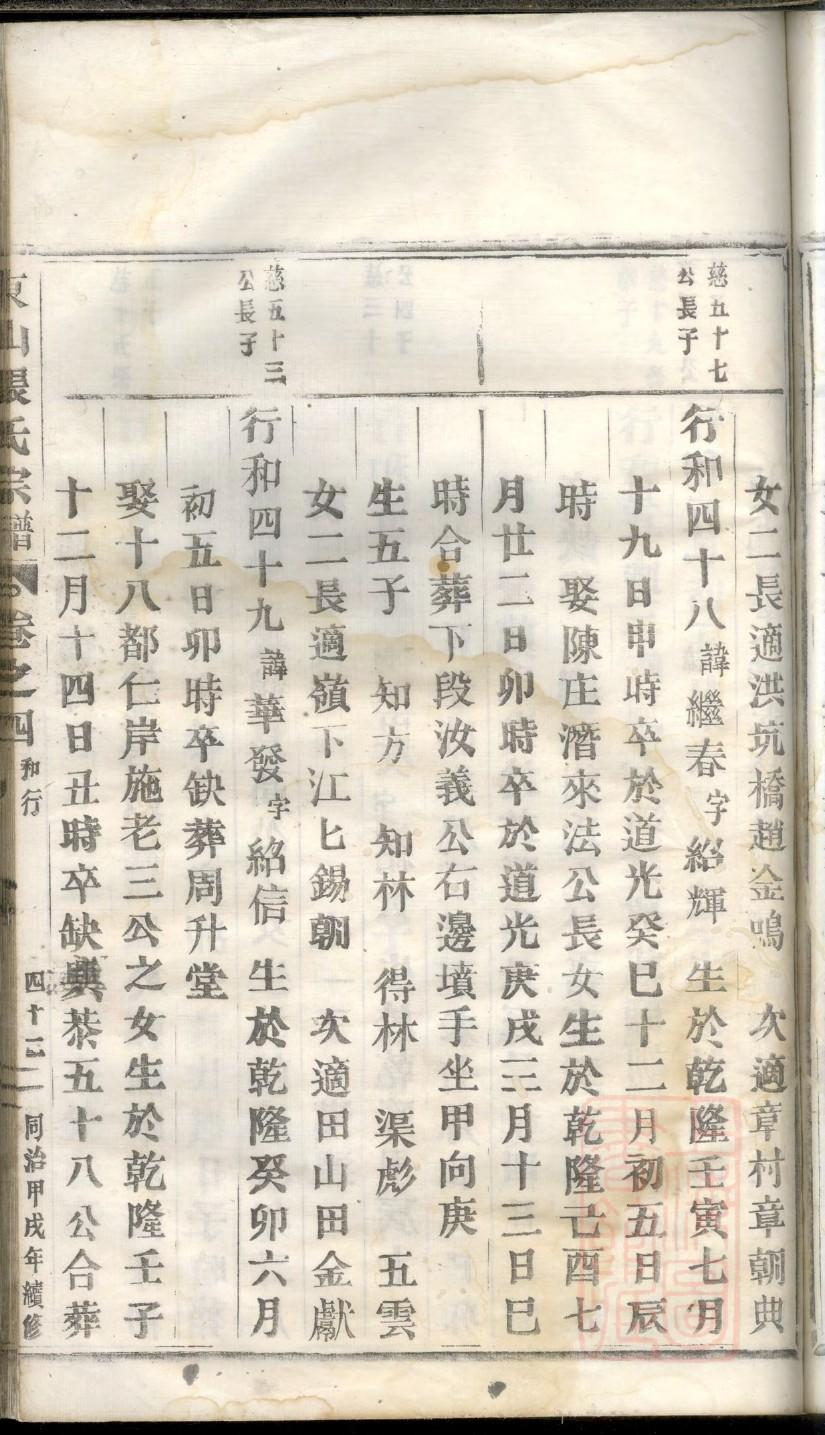 慈五十七
公長子
女二長適洪坑橋趙金鳴 次適章村章朝典
行和四十八諱繼春字紹輝 生於乾隆壬寅七月
十九日申時卒於道光癸巳十二月初五日辰
時 娶陳庄潛來法公長女生於乾隆己酉七
月廿二日卯時卒於道光庚戌三月十三日巳
時合葬下段汝義公右邊墳手坐甲向庚
生五子 知方 知林 得林 渠彪 五雲
女二長適嶺下江匕錫朝 次適田山田金獻
慈五十三
公長子
行和四十九諱華發字紹信 生於乾隆癸卯六月
初五日卯時卒缺葬周升堂
娶十八都仁岸施老三公之女生於乾隆壬子
十二月十四日丑時卒缺與恭五十八公合葬
東山張氏宗譜 卷之四 和行 四十三 同治甲戌年續修